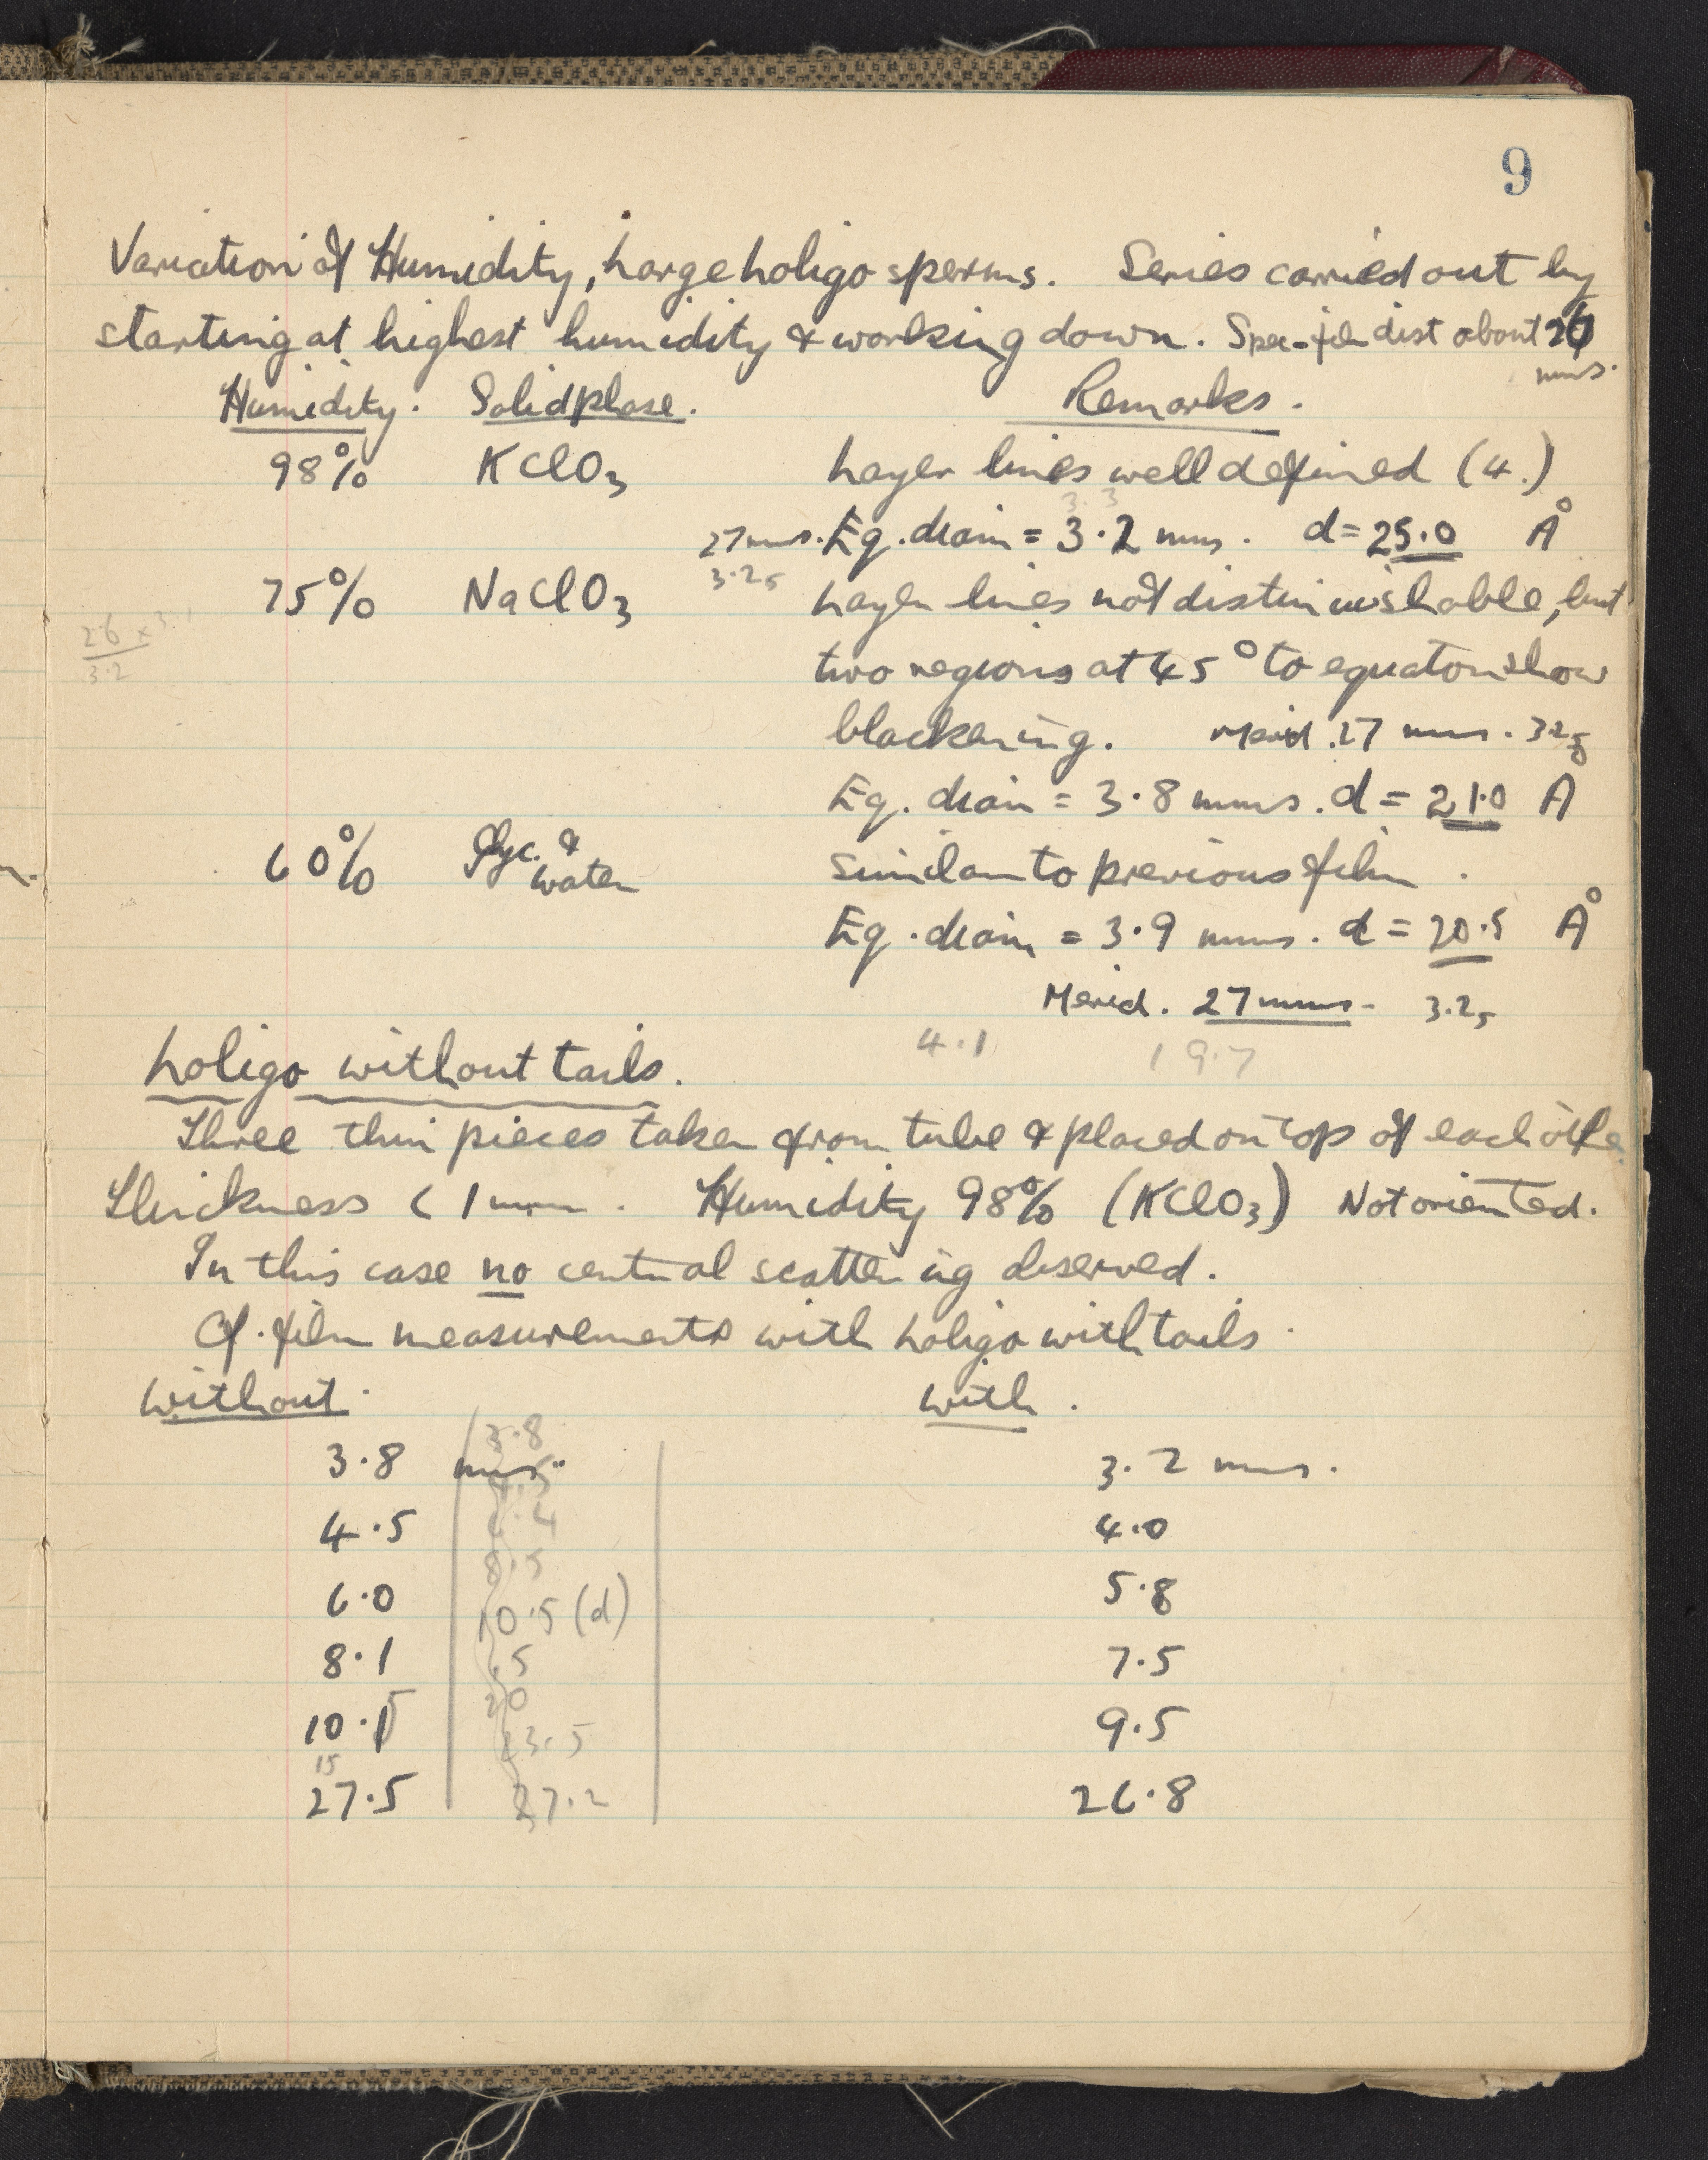 9
Variation of Humidity, Large Loligo sperms. Series carried out by
starting at highest humidity & working down. Spec-film dist about 26
mms.
Humidity. Solid phase. Remarks.
98% KClO3 Layer lines well defined (4.)
3.3
27 mms. Eq. diam = 3.2 mms. d = 25.0 Å
3.25
75% NaClO3 Layer lines not distinguishable, but
2.6 x 3.1
3.2
two regions at 45° to equator show
blackening. Merid. 27 mms. 3.25
Eq. diam = 3.8 mms. d = 21.0 Å
60% Glyc. & water Similar to previous film.
Eq. diam = 3.9 mms. d = 20.5 Å
Merid. 27 mms. 3.25
4.1 19.7
Loligo without tails.
Three thin pieces taken from tube & placed on top of each other
Thickness < 1 mm. Humidity 98% (KClO3) Not oriented.
In this case no central scattering observed.
Cf. film measurements with Loligo with tails.
without. with.
3.8
3.8 mms. 3.2 mms.
4.5
4.5 4.0
8.5
6.0 5.8
10.5 (d)
8.1 .5 7.5
20
10.5 9.5
23.5
15
27.5 27.2 26.8